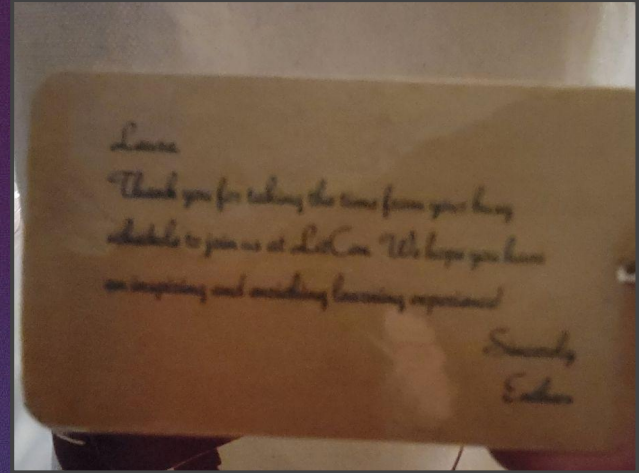 Laura
Thank you for taking the time from your busy
schedule to join us at LitCon. We hope you have
an inspiring and enriching learning experience!
Sincerely